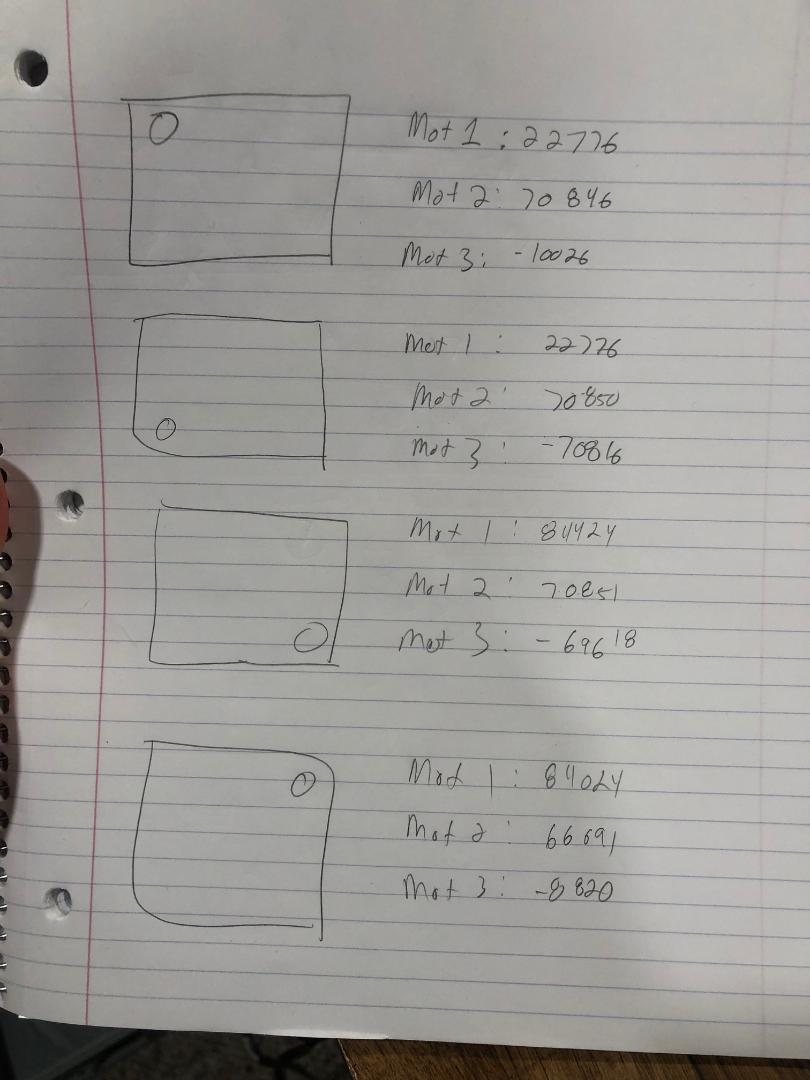 Mot 1 : 22776
Mot 2: 70846
Mot 3: -10026
Mot 1 : 22776
Mot 2: 70850
Mot 3 : -70816
Mot 1 : 84424
Mot 2 : 70851
Mot 3: -69618
Mot 1 : 84024
Mot 2 : 66691
Mot 3 : -8820